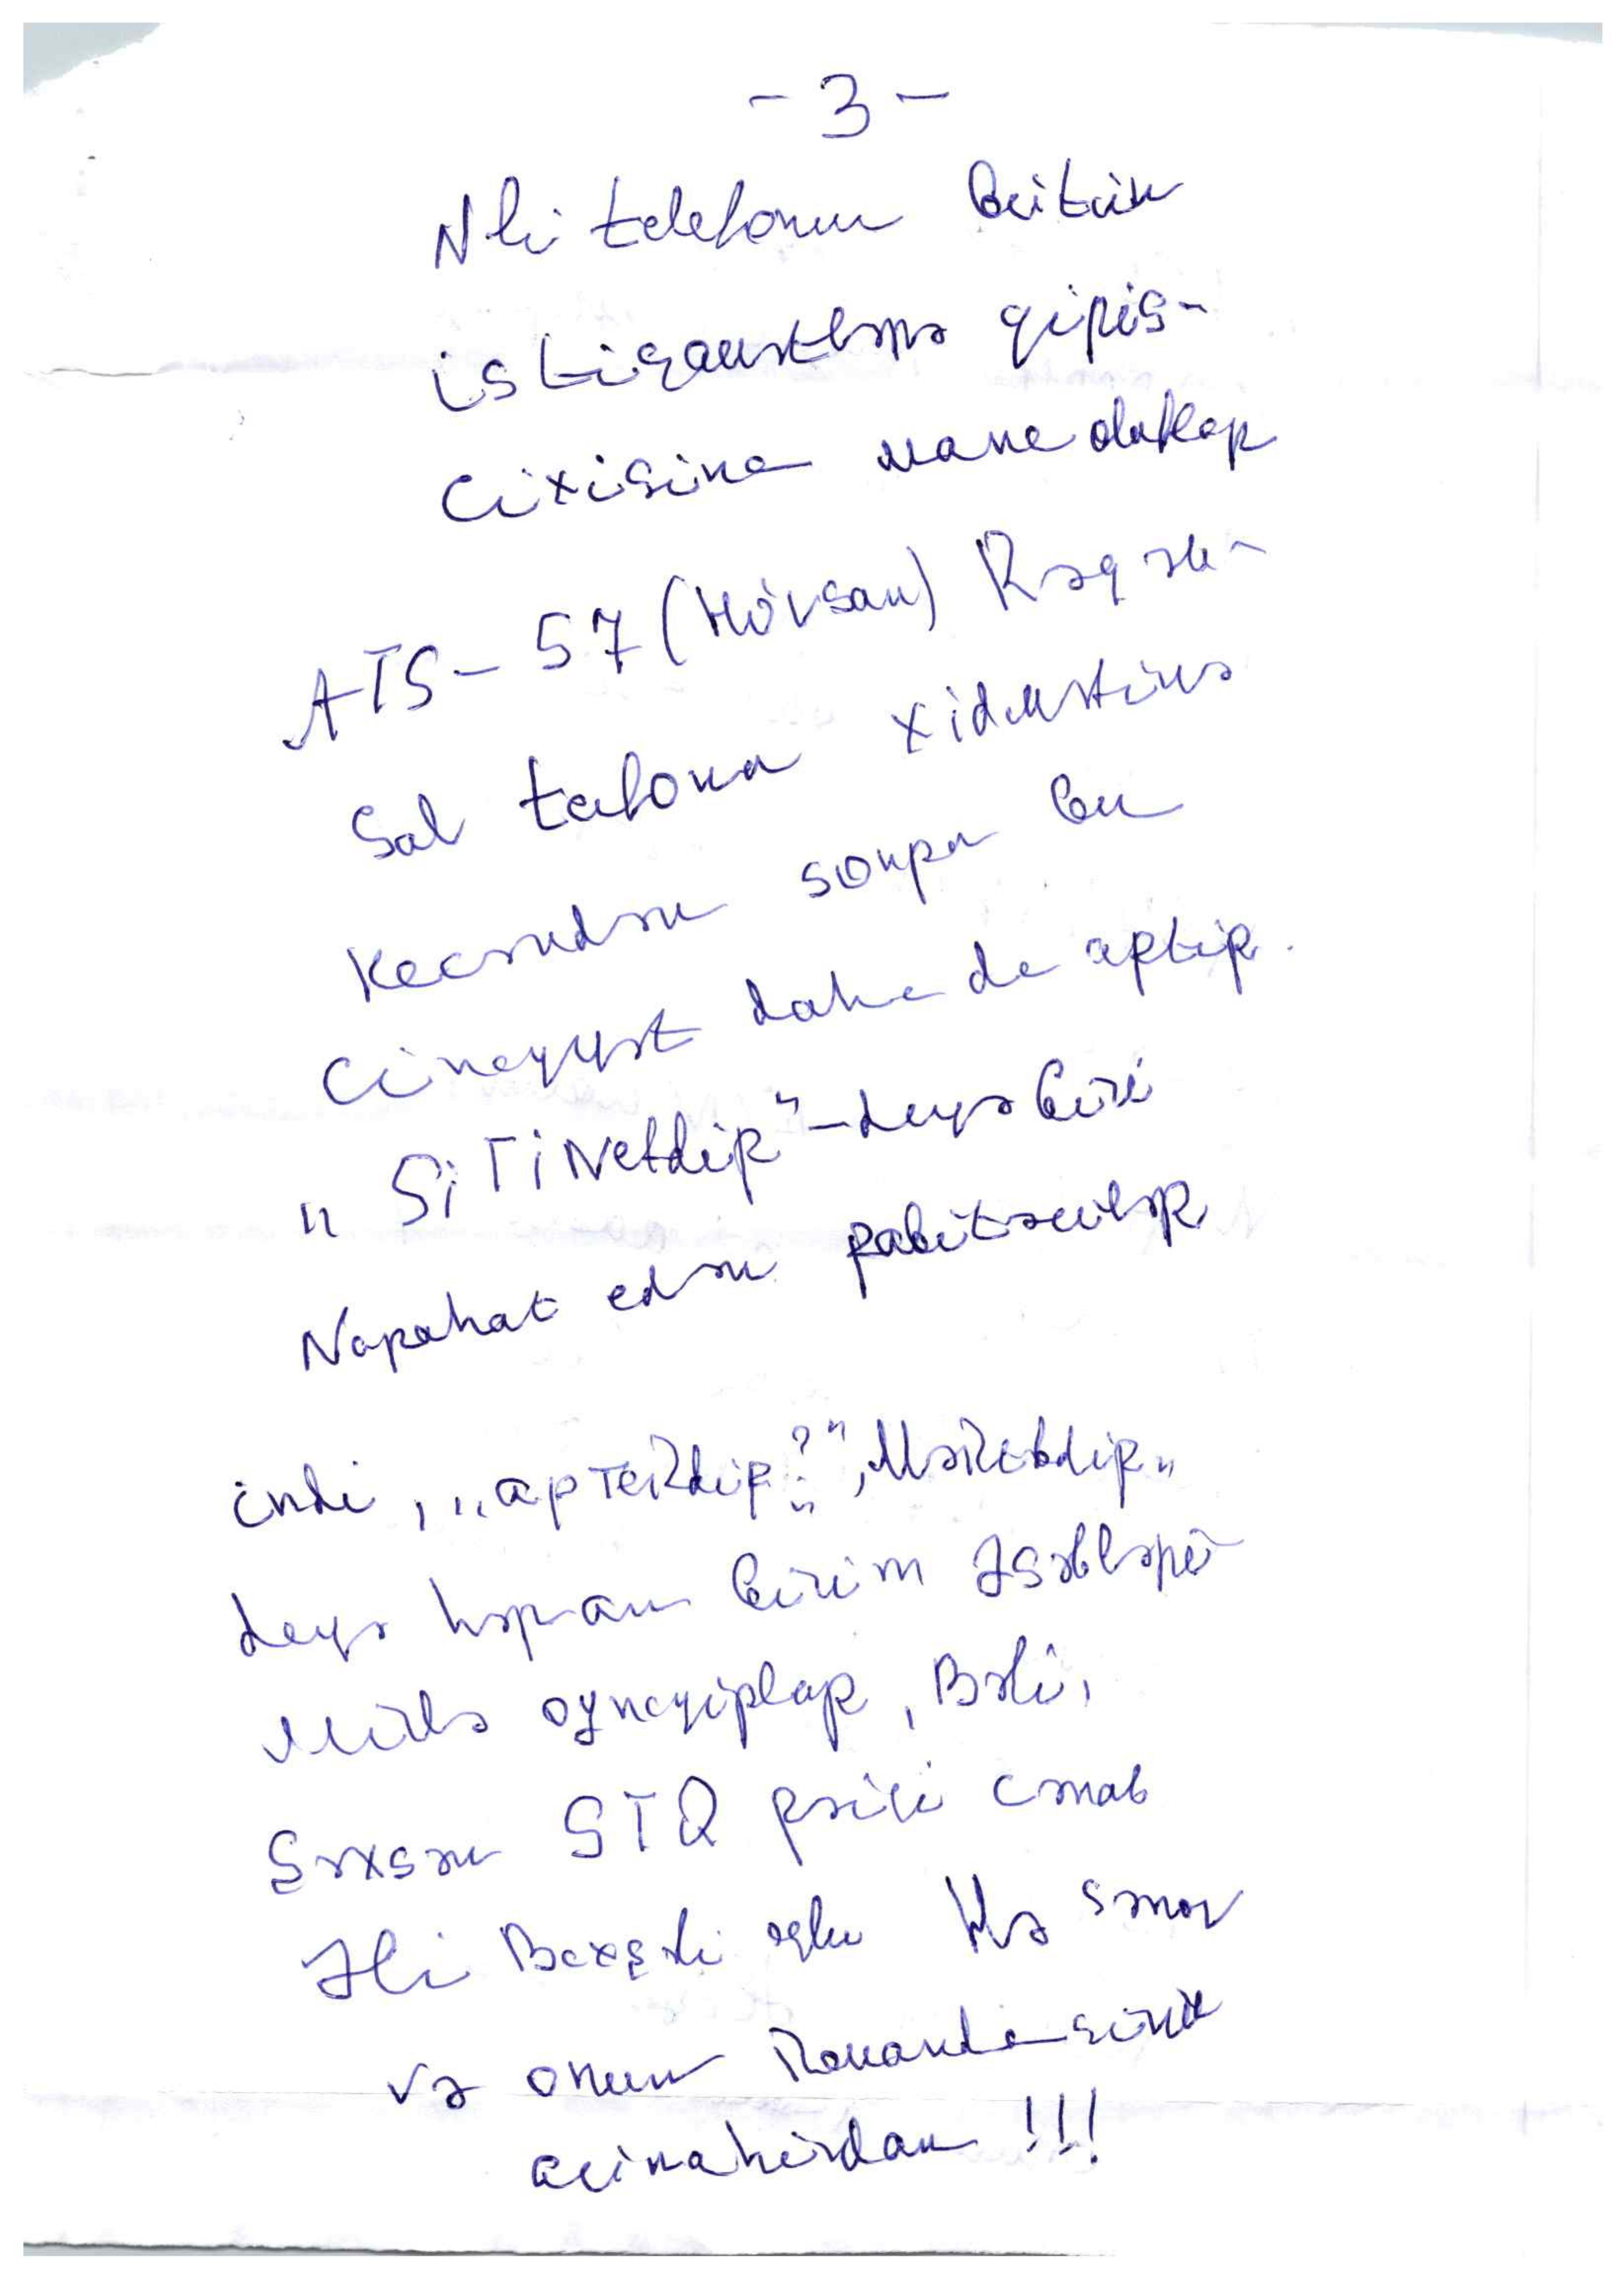 - 3 -
Nli telefonun bütün
istiqamətlərə giriş-
çıxışına mane olurlar
ATS-57 (Hövsan) Rəqəm-
sal telefona xidmətinə
Keçəndən sonra bu
cinayət daha da artır.
"SiTiNetdir" - deyə bizi
Narahat edən rabitəçilər
indi, "apTeKdir?", "Marketdir"
deyə hər an bizim əsəbləri-
mizlə oynayırlar, Bəli,
Şəxsən STQ rəisi cənab
Əli Baxşəli oğlu Həsənov
və onun komandasının
acınahırdan !!!